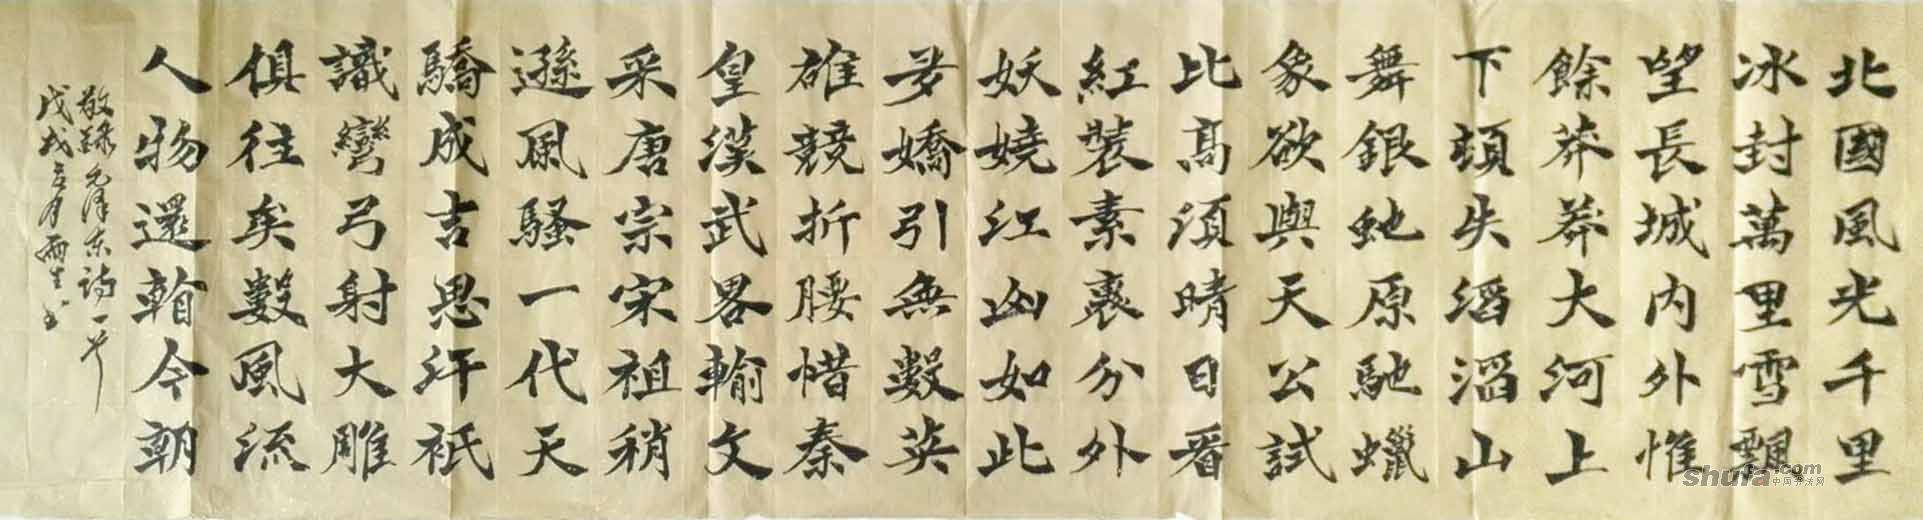 北國風光千里
冰封萬里雪飄
望長城内外惟
餘莽莽大河上
下頓失滔滔山
舞銀虵原馳蠟
象欲與天公試
比高須晴日看
紅裝素裹分外
妖嬈江山如此
多嬌引無數英
雄競折腰惜秦
皇漢武畧輸文
采唐宗宋祖稍
遜風騷一代天
驕成吉思汗祇
識彎弓射大雕
俱往矣數風流
人物還看今朝
敬録毛澤东詩一首
戊戌五月雨生书
shufa.com
中国书法网